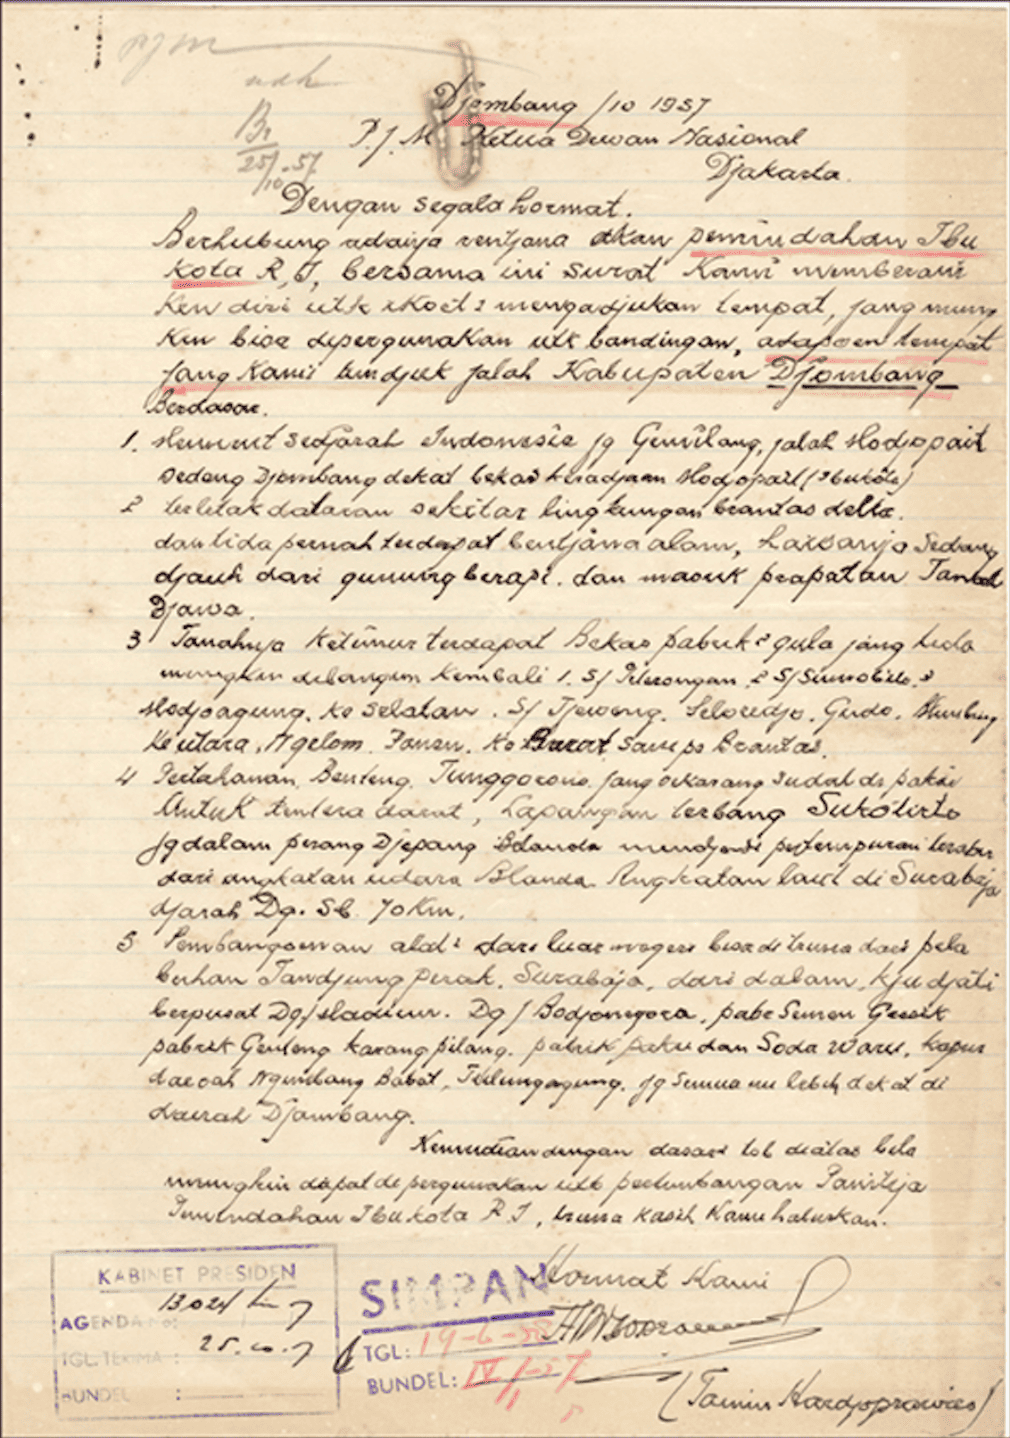 Djombang /10 1957
P.J.M. Ketua Dewan Nasional
Djakarta.
Br
25/10-57
Dengan segala hormat.
Berhubung adanja rentjana akan pemindahan Ibu
kota R.I, bersama ini surat Kami memberani
ken diri utk ikoet2 mengadjukan tempat, jang mung
kin bisa dipergunakan utk bandingan, adapoen tempat
jang Kami tundjuk jalah Kabupaten Djombang
Berdasar.
1. Menurut sedjarah Indonesia jg Gemilang, jalah Modjopait
sedang Djombang dekat bekas keradjaan Modjopait (Ibukota)
2 terletak dataran sekitar lingkungan brantas delta.
dan tida pernah terdapat bentjana alam, Sedang
djauh dari gunung berapi. dan masuk prapatan Tanah
Djawa.
3 Tanahnja Ketimur terdapat Bekas pabrik2 gula jang tida
mungkin dibangun kembali 1. S/ Peterongan. 2 S/ Sumobito. 3
Modjoagung. Ke selatan. S/ Tjeweng. Seloredjo. Gudo.
Ke utara, Ngelom. Ponen. Ke Barat sampe Brantas.
4 Pertahanan Benteng Tunggorono jang sekarang sudah di pakai
Untuk tentera darat, Lapangan terbang Sukotirto
jg dalam perang Djepang Belanda mendjadi pertempuran terachir
dari angkatan udara Blanda. Angkatan laut di Surabaja
djarah Dg. Sb. 70 Km.
5 Pembangoenan alat2 dari luar negeri bisa di trima dari pela
buhan Tandjung perak, Surabaja, dari dalam, kju djati
berpusat Dg/ Madiun. Dg/ Bodjonegoro, pabr Semen Gresik
pabrik Genteng Karang pilang. pabrik paku dan Soda Waru, kapur
daerah Ngimbang Babat, Tulungagung. jg semua nu lebih dekat di
daerah Djombang.
Kemudian dengan dasar2 tsb diatas bila
mungkin dapat di pergunakan utk pertimbangan Panitija
Pemindahan Ibu kota R.I, trima kasih Kami haturkan.
Hormat Kami
(Tamin Hardjoprawiro)
KABINET PRESIDEN
AGENDA No: 13024
TGL. TERIMA :
BUNDEL :
SIMPAN
TGL: 19-6-58
BUNDEL: